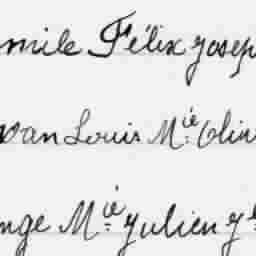 mile Félix Josep
van Louis M.ie Olin
nge M.ie Julien J